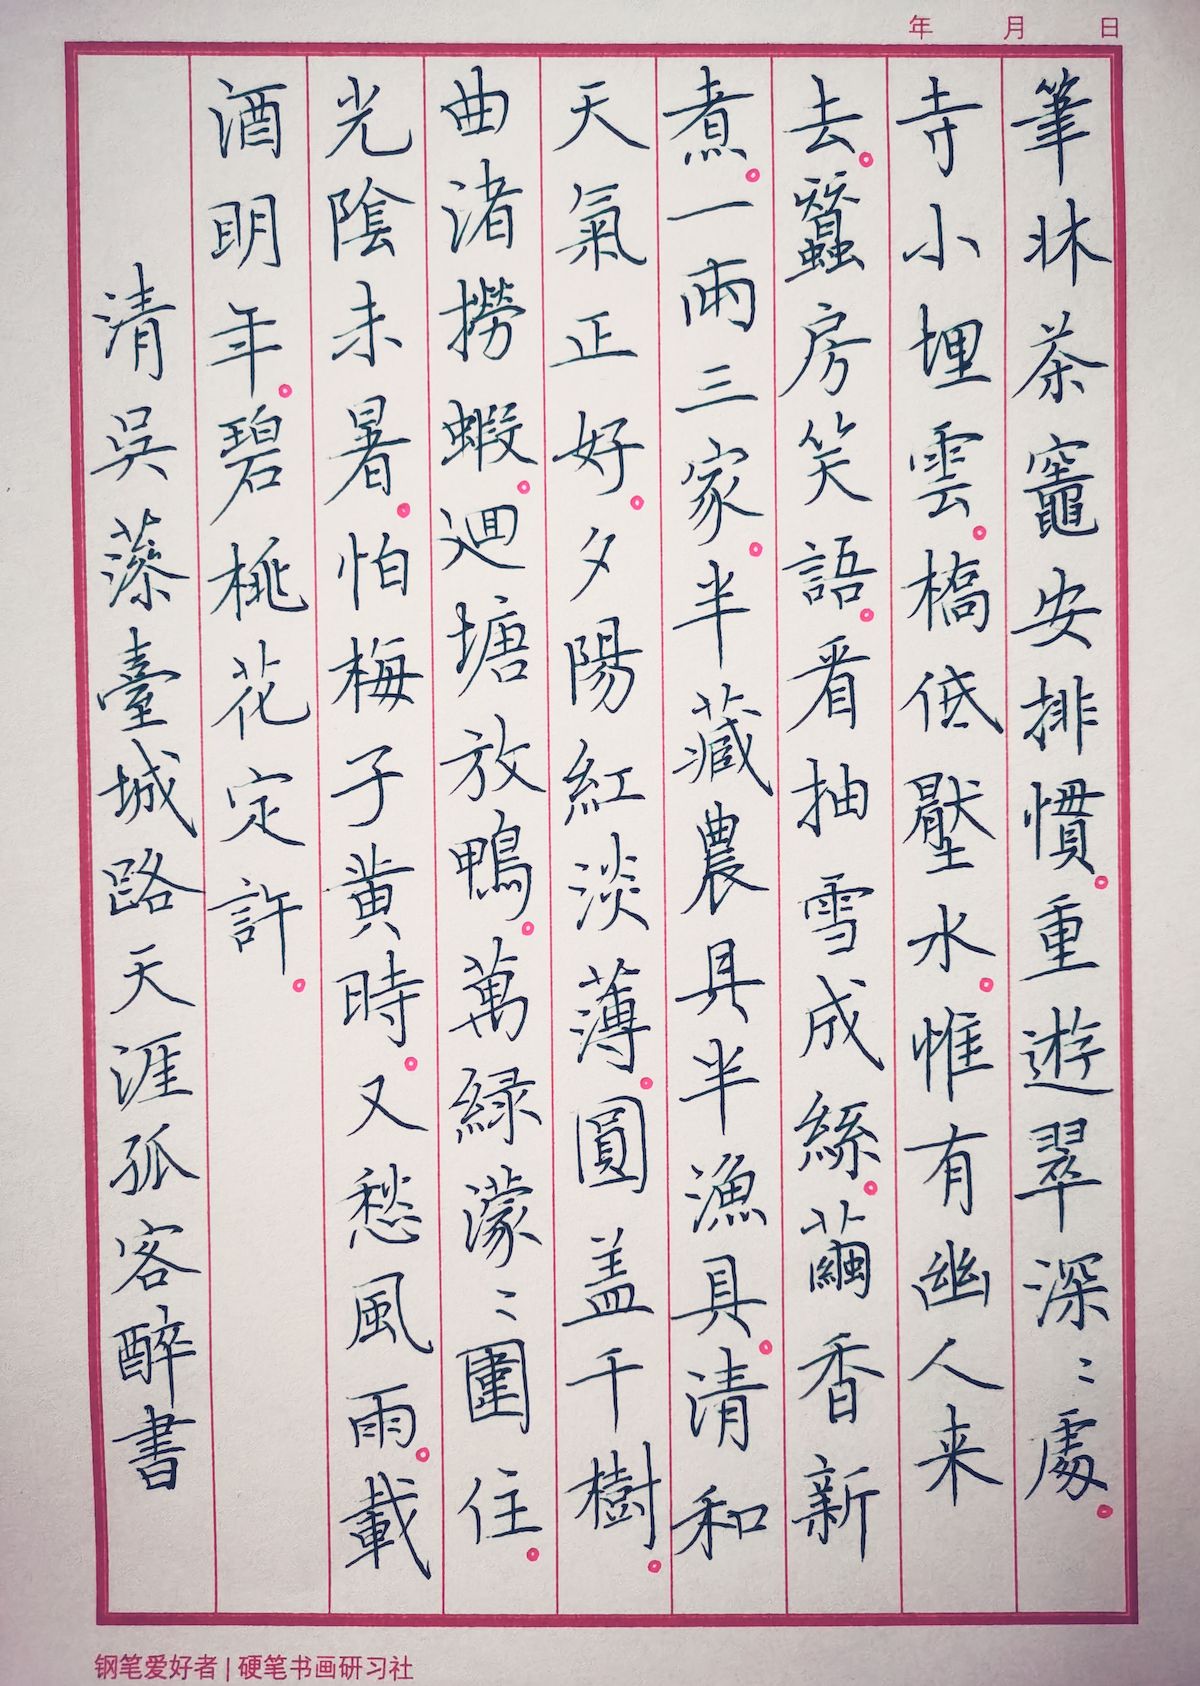 年 月 日
筆牀茶竈安排慣。重遊翠深〻處。
寺小埋雲。橋低壓水。惟有幽人来
去。蠶房笑語。看抽雪成絲。繭香新
煮。一兩三家。半藏農具半漁具。清和
天氣正好。夕陽紅淡薄。圓盖千樹
曲渚撈蝦。迴塘放鴨。萬緑濛〻圍住。
光陰未暑。怕梅子黄時。又愁風雨。載
酒明年。碧桃花定許。
清吳蔆臺城路天涯孤客醉書
钢笔爱好者 | 硬笔书画研习社